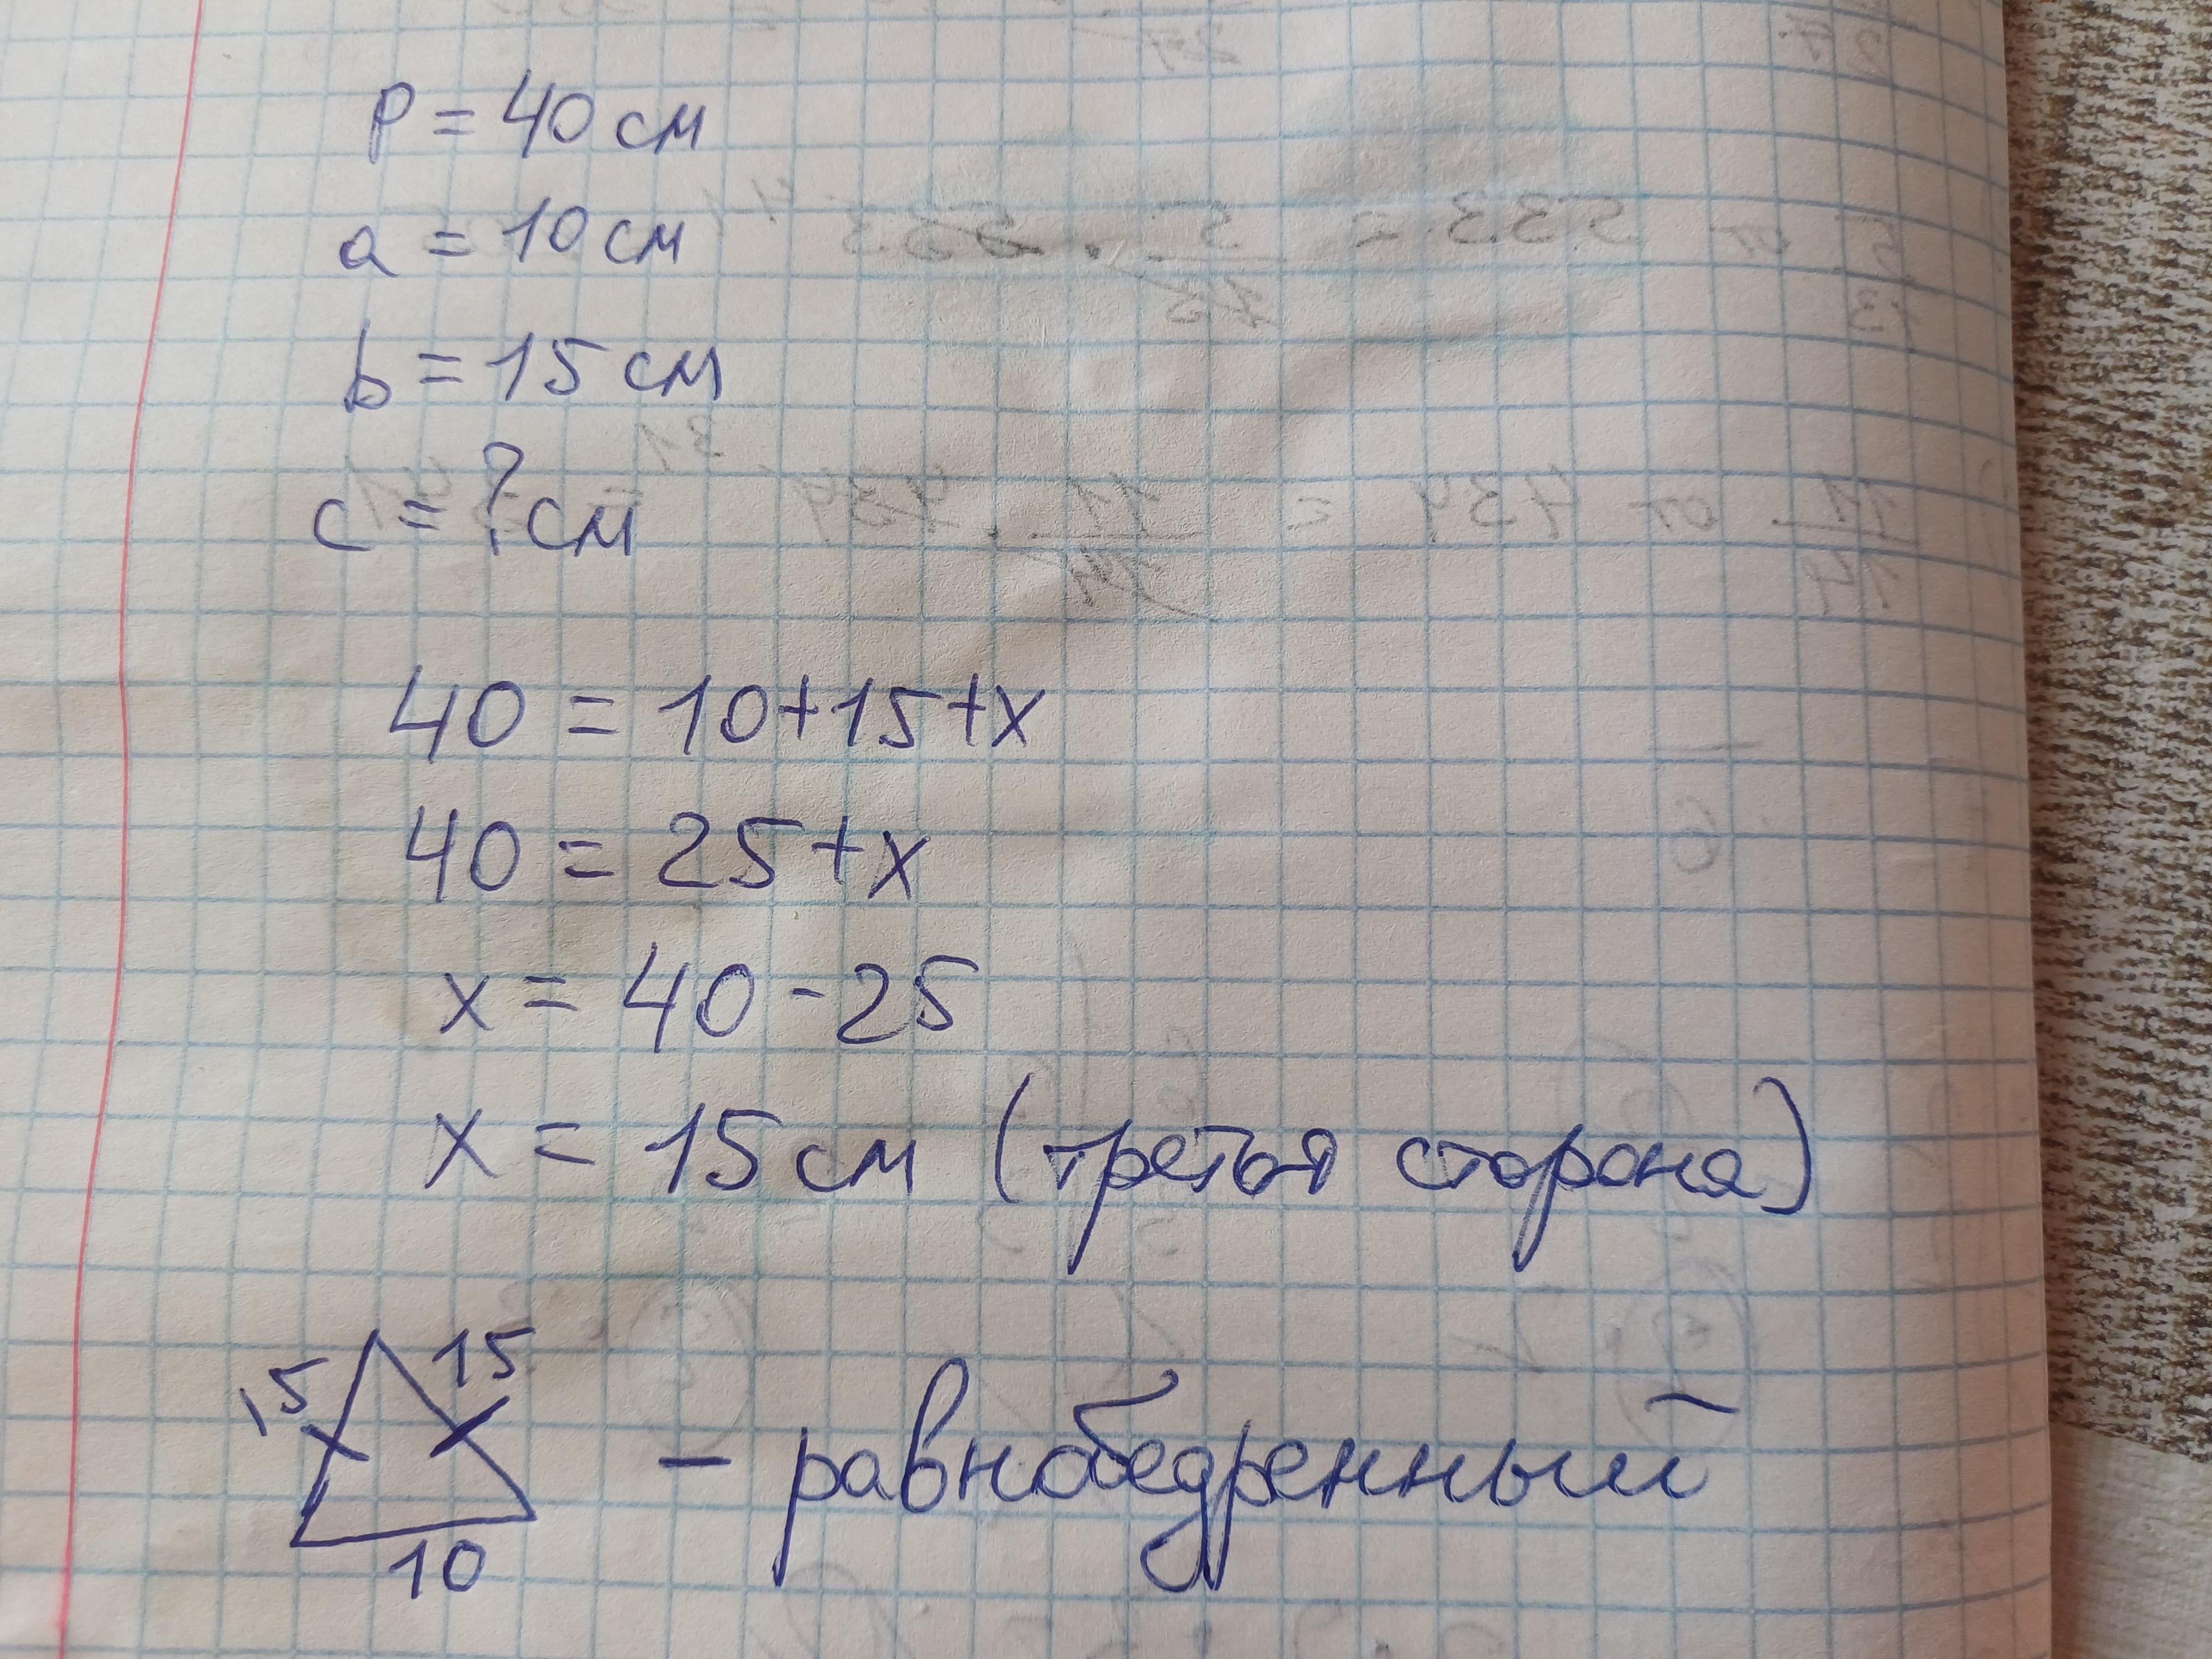 P = 40 см
a = 10 см
b = 15 см
c = ? см
40 = 10+15+x
40 = 25+x
x = 40 - 25
x = 15 см (третья сторона)
15 15
- равнобедренный
10